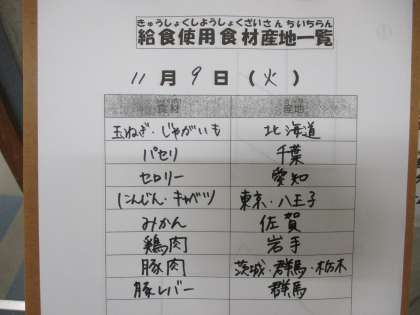 きゅうしょくしようしょくざいさんちいちらん
給食使用食材産地一覧
11月9日(火)
食材 産地
玉ねぎ・じゃがいも 北海道
パセリ 千葉
セロリー 愛知
にんじん・キャベツ 東京・八王子
みかん 佐賀
鶏肉 岩手
豚肉 茨城・群馬・栃木
豚レバー 群馬